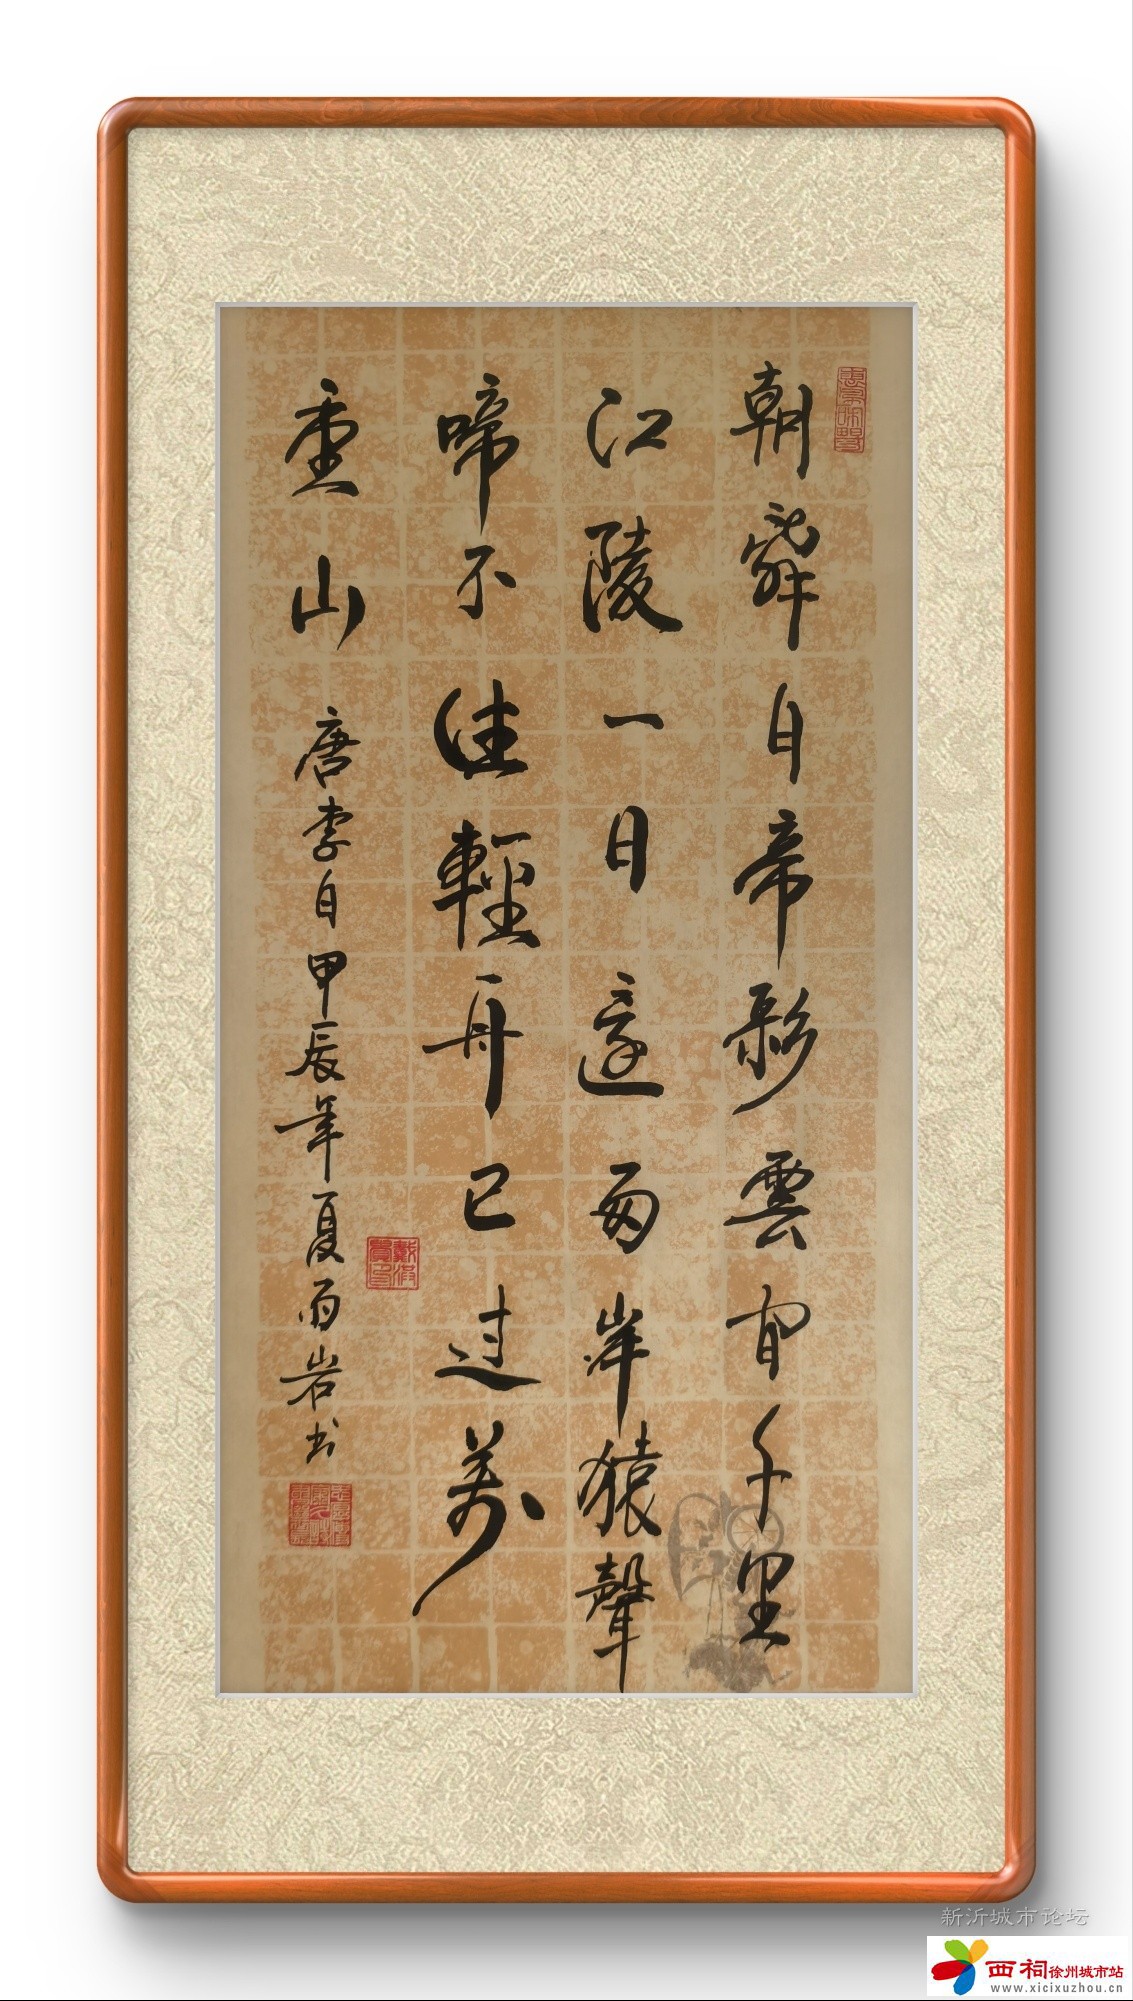 朝辞白帝彩雲間千里
江陵一日還兩岸猿聲
啼不住輕舟已过萬
重山
唐李白甲辰年夏雨岩书
新沂城市论坛
西祠徐州城市站
www.xicixuzhou.cn